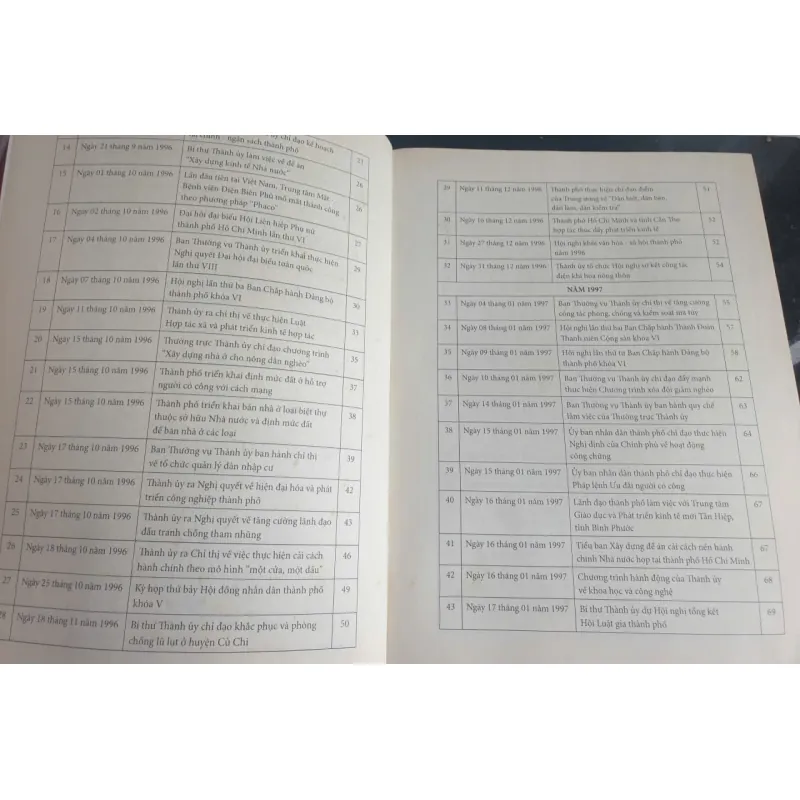 ủy chỉ đạo kế hoạch
ngân sách thành phố 21
14 Ngày 21 tháng 9 năm 1996 Bí thư Thành ủy làm việc về đề án
"Xây dựng kinh tế Nhà nước" 26
15 Ngày 01 tháng 10 năm 1996 Lần đầu tiên tại Việt Nam, Trung tâm Mắt 26
Bệnh viện Điện Biên Phủ mổ mắt thành công
theo phương pháp "Phaco"
16 Ngày 02 tháng 10 năm 1996 Đại hội đại biểu Hội Liên hiệp Phụ nữ
thành phố Hồ Chí Minh lần thứ VI
17 Ngày 04 tháng 10 năm 1996 Ban Thường vụ Thành ủy triển khai thực hiện 29
Nghị quyết Đại hội đại biểu toàn quốc
lần thứ VIII
18 Ngày 07 tháng 10 năm 1996 Hội nghị lần thứ ba Ban Chấp hành Đảng bộ 30
thành phố khóa VI
19 Ngày 11 tháng 10 năm 1996 Thành ủy ra chỉ thị về thực hiện Luật 33
Hợp tác xã và phát triển kinh tế hợp tác
20 Ngày 15 tháng 10 năm 1996 Thường trực Thành ủy chỉ đạo chương trình 35
"Xây dựng nhà ở cho nông dân nghèo"
21 Ngày 15 tháng 10 năm 1996 Thành phố triển khai định mức đất ở hỗ trợ 37
người có công với cách mạng
22 Ngày 15 tháng 10 năm 1996 Thành phố triển khai bán nhà ở loại biệt thự 38
thuộc sở hữu Nhà nước và định mức đất
để bán nhà ở các loại
23 Ngày 17 tháng 10 năm 1996 Ban Thường vụ Thành ủy ban hành chỉ thị 39
về tổ chức quản lý dân nhập cư
24 Ngày 17 tháng 10 năm 1996 Thành ủy ra Nghị quyết về hiện đại hóa và phát 42
triển công nghiệp thành phố
25 Ngày 17 tháng 10 năm 1996 Thành ủy ra Nghị quyết về tăng cường lãnh đạo 43
đấu tranh chống tham nhũng
26 Ngày 18 tháng 10 năm 1996 Thành ủy ra Chỉ thị về việc thực hiện cải cách 46
hành chính theo mô hình "một cửa, một dấu"
27 Ngày 25 tháng 10 năm 1996 Kỳ họp thứ bảy Hội đồng nhân dân thành phố 49
khóa V
28 Ngày 18 tháng 11 năm 1996 Bí thư Thành ủy chỉ đạo khắc phục và phòng 50
chống lũ lụt ở huyện Củ Chi
29 Ngày 11 tháng 12 năm 1996 Thành phố thực hiện chỉ đạo điểm 51
của Trung ương về "Dân biết, dân bàn
dân làm, dân kiểm tra"
30 Ngày 16 tháng 12 năm 1996 Thành phố Hồ Chí Minh và tỉnh Cần Thơ
hợp tác thúc đẩy phát triển kinh tế
31 Ngày 27 tháng 12 năm 1996 Hội nghị khối văn hóa - xã hội thành phố 52
năm 1996
32 Ngày 31 tháng 12 năm 1996 Thành ủy tổ chức Hội nghị sơ kết công tác 54
điện khí hóa nông thôn
NĂM 1997
33 Ngày 04 tháng 01 năm 1997 Ban Thường vụ Thành ủy chỉ thị về tăng cường 55
công tác phòng, chống và kiểm soát ma túy
34 Ngày 08 tháng 01 năm 1997 Hội nghị lần thứ Ban Chấp hành Thành Đoàn 57
Thanh niên Cộng sản khóa VI
35 Ngày 09 tháng 01 năm 1997 Hội nghị lần thứ tư Ban Chấp hành Đảng bộ 58
thành phố khóa VI
36 Ngày 10 tháng 01 năm 1997 Ban Thường vụ Thành ủy chỉ đạo đẩy mạnh 62
thực hiện Chương trình xóa đói giảm nghèo
37 Ngày 14 tháng 01 năm 1997 Ban Thường vụ Thành ủy ban hành quy chế 63
làm việc của Thường trực Thành ủy
38 Ngày 15 tháng 01 năm 1997 Ủy ban nhân dân thành phố chỉ đạo thực hiện 64
Nghị định của Chính phủ về hoạt động
công chứng
39 Ngày 15 tháng 01 năm 1997 Ủy ban nhân dân thành phố chỉ đạo thực hiện 66
Pháp lệnh Ưu đãi người có công
40 Ngày 16 tháng 01 năm 1997 Lãnh đạo thành phố làm việc với Trung tâm 67
Giáo dục và Phát triển kinh tế mới Tân Hiệp,
tỉnh Bình Phước
41 Ngày 16 tháng 01 năm 1997 Tiểu ban Xây dựng đề án cải cách nền hành 67
chính Nhà nước họp tại thành phố Hồ Chí Minh
42 Ngày 16 tháng 01 năm 1997 Chương trình hành động của Thành ủy 68
về khoa học và công nghệ
43 Ngày 17 tháng 01 năm 1997 Bí thư Thành ủy dự Hội nghị tổng kết 69
Hội Luật gia thành phố